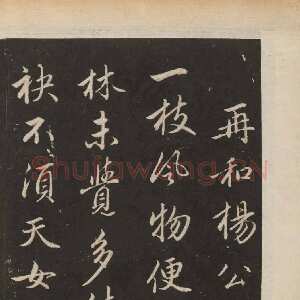 再和楊公
一枝風物便
林未覺多
袂不須天女
Shufawang.CN